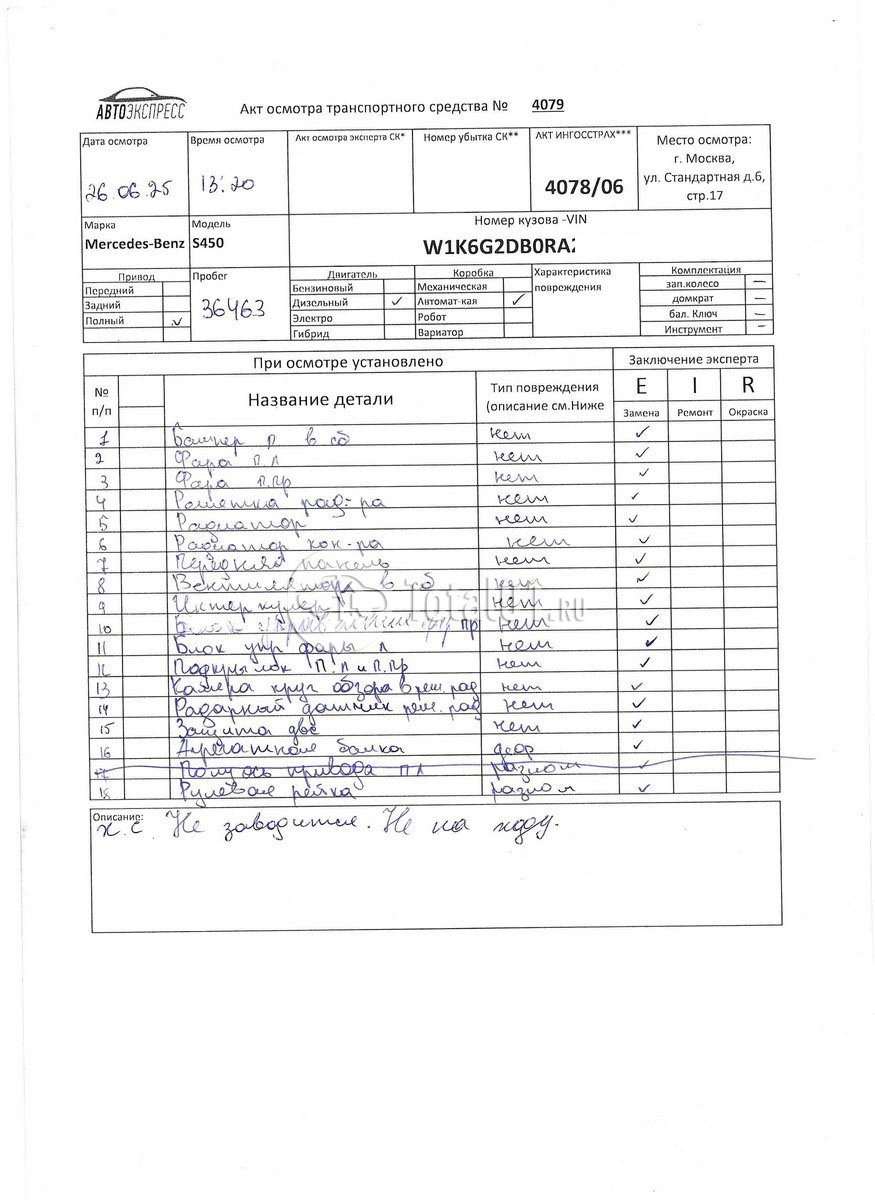 АВТОЭКСПРЕСС
Акт осмотра транспортного средства № 4079
Дата осмотра
26.06.25
Время осмотра
13:20
Акт осмотра эксперта СК*
Номер убытка СК**
АКТ ИНГОССТРАХ***
4078/06
Место осмотра:
г. Москва,
ул. Стандартная д.6,
стр.17
Марка
Mercedes-Benz
Модель
S450
Номер кузова -VIN
W1K6G2DB0RA
Привод
Передний
Задний
Полный ✓
Пробег
36463
Двигатель
Бензиновый
Дизельный ✓
Электро
Гибрид
Коробка
Механическая
Автомат-кая ✓
Робот
Вариатор
Характеристика
повреждения
Комплектация
зап.колесо —
домкрат —
бал. Ключ —
Инструмент —
При осмотре установлено
Заключение эксперта
№
п/п
Название детали
Тип повреждения
(описание см.Ниже
E I R
Замена Ремонт Окраска
1 Бампер п в сб нет ✓
2 Фара п.л нет ✓
3 Фара п.пр нет ✓
4 Решетка рад-ра нет ✓
5 Радиатор нет ✓
6 Радиатор кон-ра нет ✓
7 Передняя панель нет ✓
8 Вентилятора в сб нет ✓
9 Интеркулер нет ✓
10 Блок управления пр нет ✓
11 Блок упр фары л нет ✓
12 Подкрылок п.л и п.пр нет ✓
13 Камера круг обзора в реш. рад нет ✓
14 Радарный датчик реш. рад нет ✓
15 Защита двс нет ✓
16 Агрегатной балка деф ✓
17 Полуось привода п л разлом ✓
18 Рулевая рейка разлом ✓
TotalAvt.RU
Описание:
х.с Не заводится. Не на ходу.